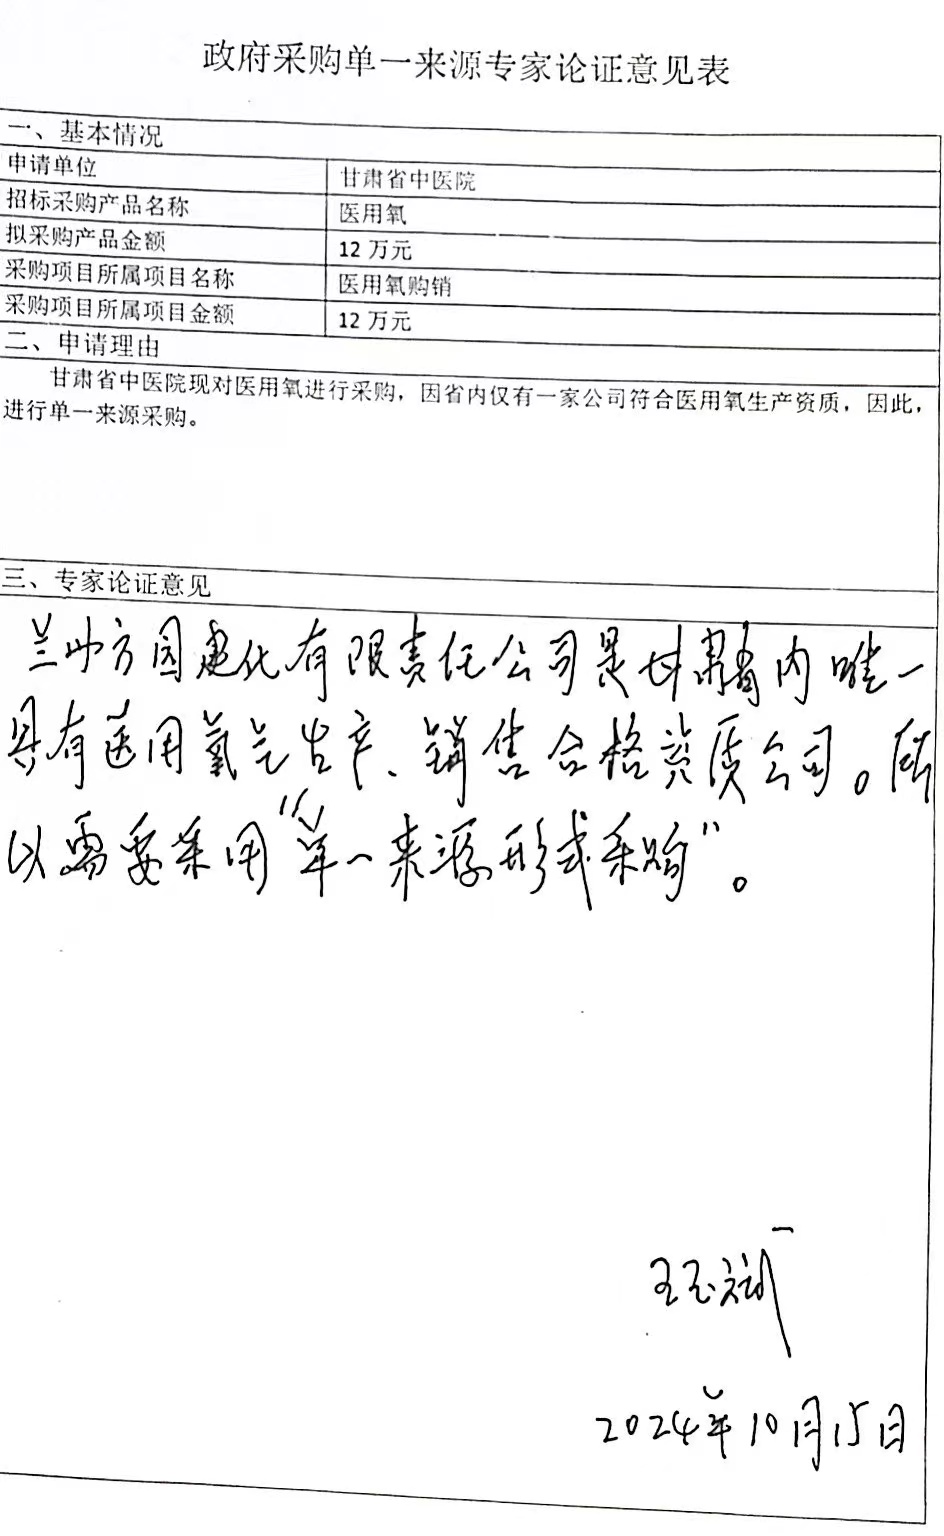 政府采购单一来源专家论证意见表
一、基本情况
申请单位 甘肃省中医院
招标采购产品名称 医用氧
拟采购产品金额 12 万元
采购项目所属项目名称 医用氧购销
采购项目所属项目金额 12 万元
二、申请理由
甘肃省中医院现对医用氧进行采购，因省内仅有一家公司符合医用氧生产资质，因此，
进行单一来源采购。
三、专家论证意见
兰州方圆建化有限责任公司是甘肃省内唯一
具有医用氧气生产、销售合格资质公司。所
以需要采用“单一来源形式采购”。
王玉斌
2024年10月15日